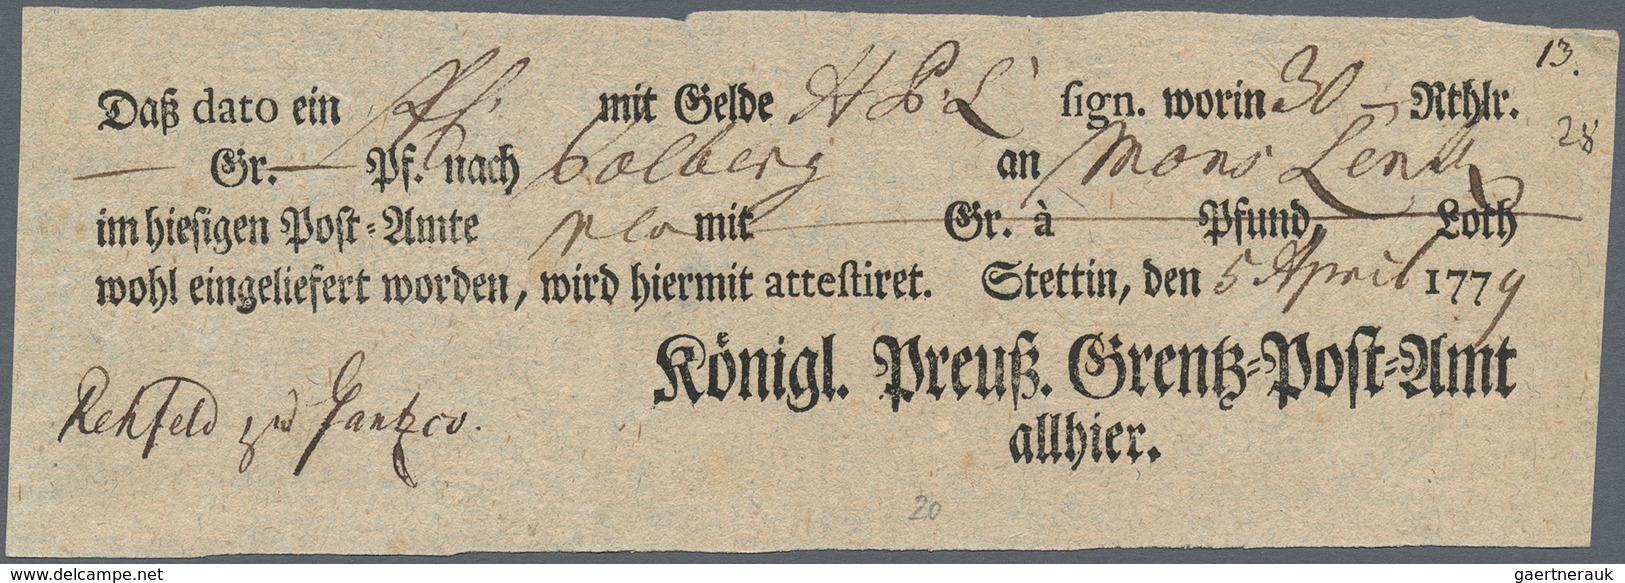 13.
Daß dato ein mit Gelde H B. L sign. worin 30 — Rthlr.
28
— Gr. — Pf. nach Colberg an Mons
im hiesigen Post-Amte mit — Gr. à Pfund, Loth
wohl eingeliefert worden, wird hiermit attestiret. Stettin, den 5 April 1779
Königl. Preuß. Grentz-Post-Amt
allhier.
Rehfeld zu
20
delcampe.net
gaertnerauk